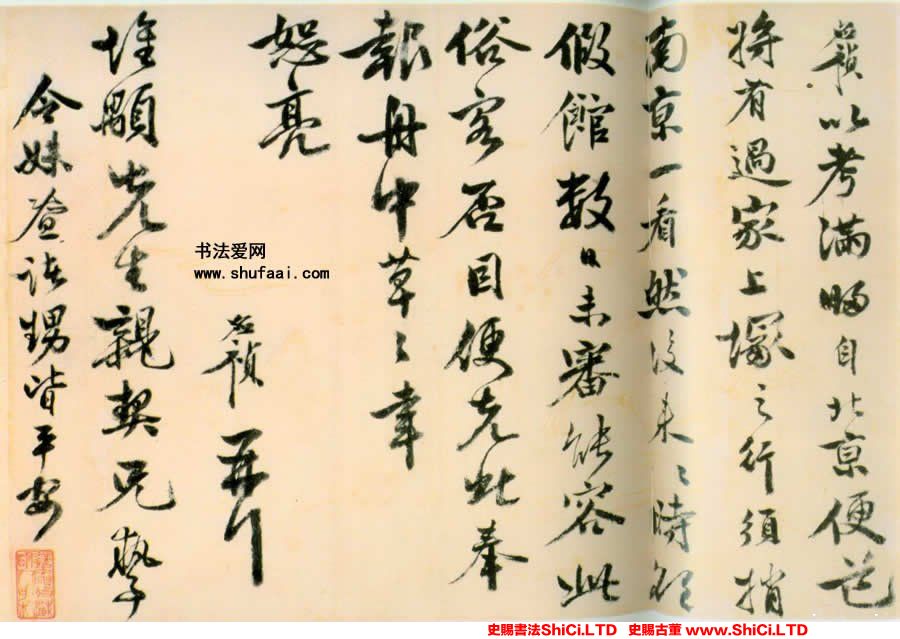 以考滿歸自北京便道
將有過家上塚之行須捎
南京一看然後來々時欲
假館數日未審能容此
俗客否因便先此奉
報舟中草々幸
恕亮
禎 再拜
惟顒先生親契兄執事
令妹暨諸甥皆平安
书法爱网
www.shufaai.com
史賜書法ShiCi.LTD 史賜古董 www.ShiCi.LTD